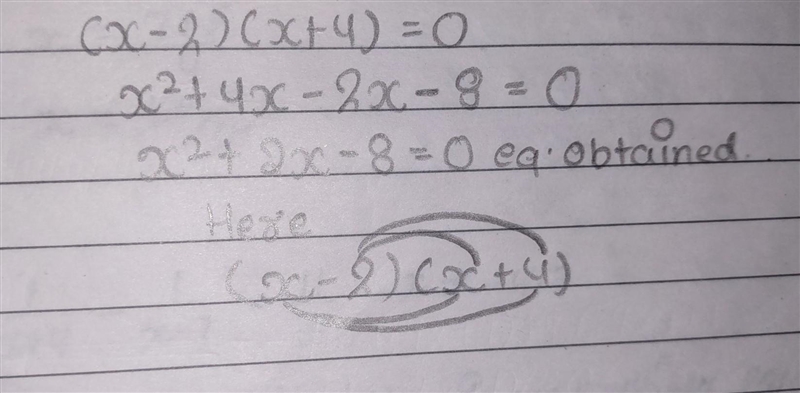 (x-2)(x+4)=0
x²+4x-2x-8=0
x²+2x-8=0 eq. obtained.
Here
(x-2)(x+4)